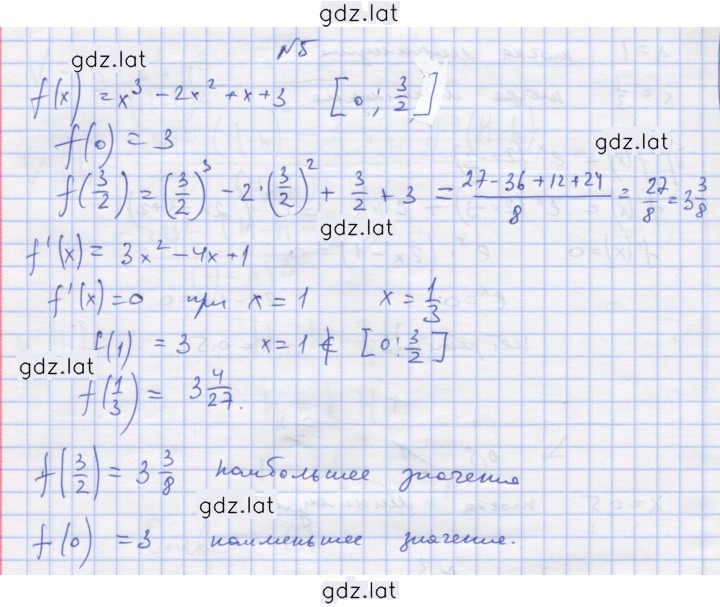 gdz.lat
№5
gdz.lat
f(x) = x³ - 2x² + x + 3 [0; 3/2]
f(0) = 3
gdz.lat
f(3/2) = (3/2)³ - 2·(3/2)² + 3/2 + 3 = (27-36+12+24)/8 = 27/8 = 3 3/8
gdz.lat
f'(x) = 3x² - 4x + 1
f'(x) = 0 при x = 1 x = 1/3
f(1) = 3 x = 1 ∉ [0; 3/2]
gdz.lat
f(1/3) = 3 4/27.
f(3/2) = 3 3/8 наибольшее значение
gdz.lat
f(0) = 3 наименьшее значение.
gdz.lat